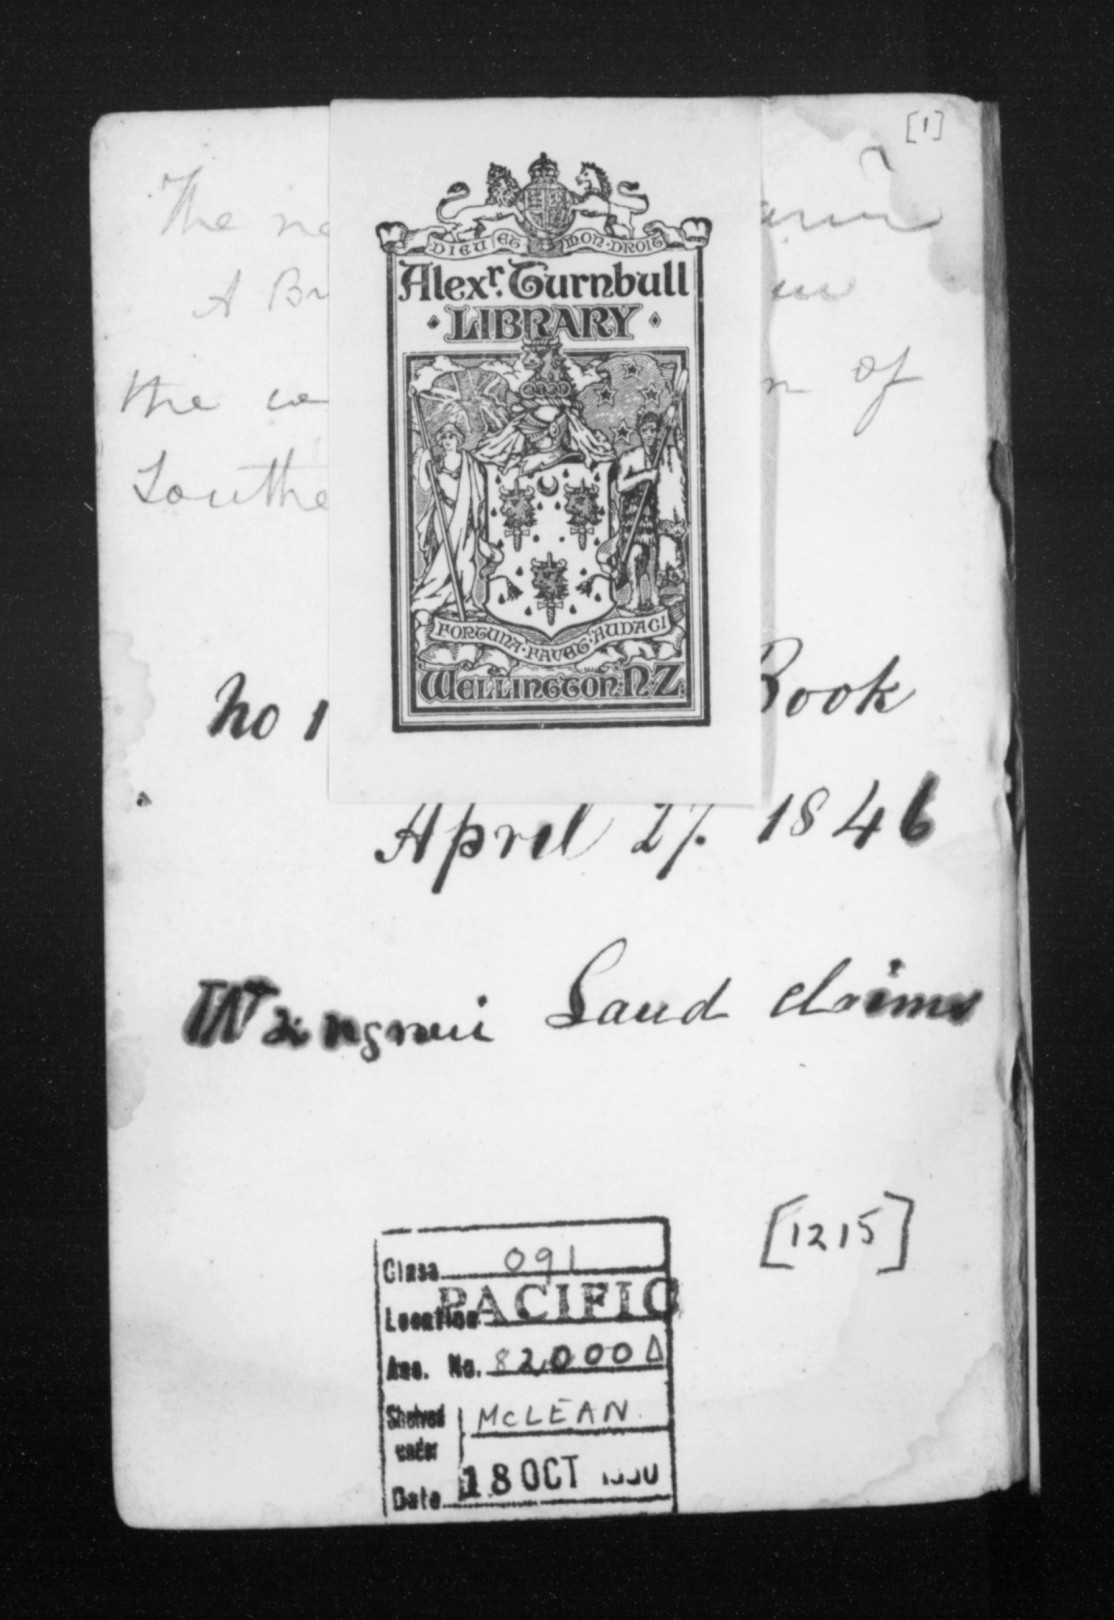 [1]
The
A Br
the of
Southe
DIEU ET MON DROIT
Alexr. Turnbull
LIBRARY
FORTUNA · FAVET · AUDACI
WELLINGTON · N.Z
No 1 Book
April 27. 1846
Wangnui Land claims
[1215]
Class 091
Location PACIFIC
Acc. No. 82,000 Δ
Shelved under McLEAN
Date 18 OCT